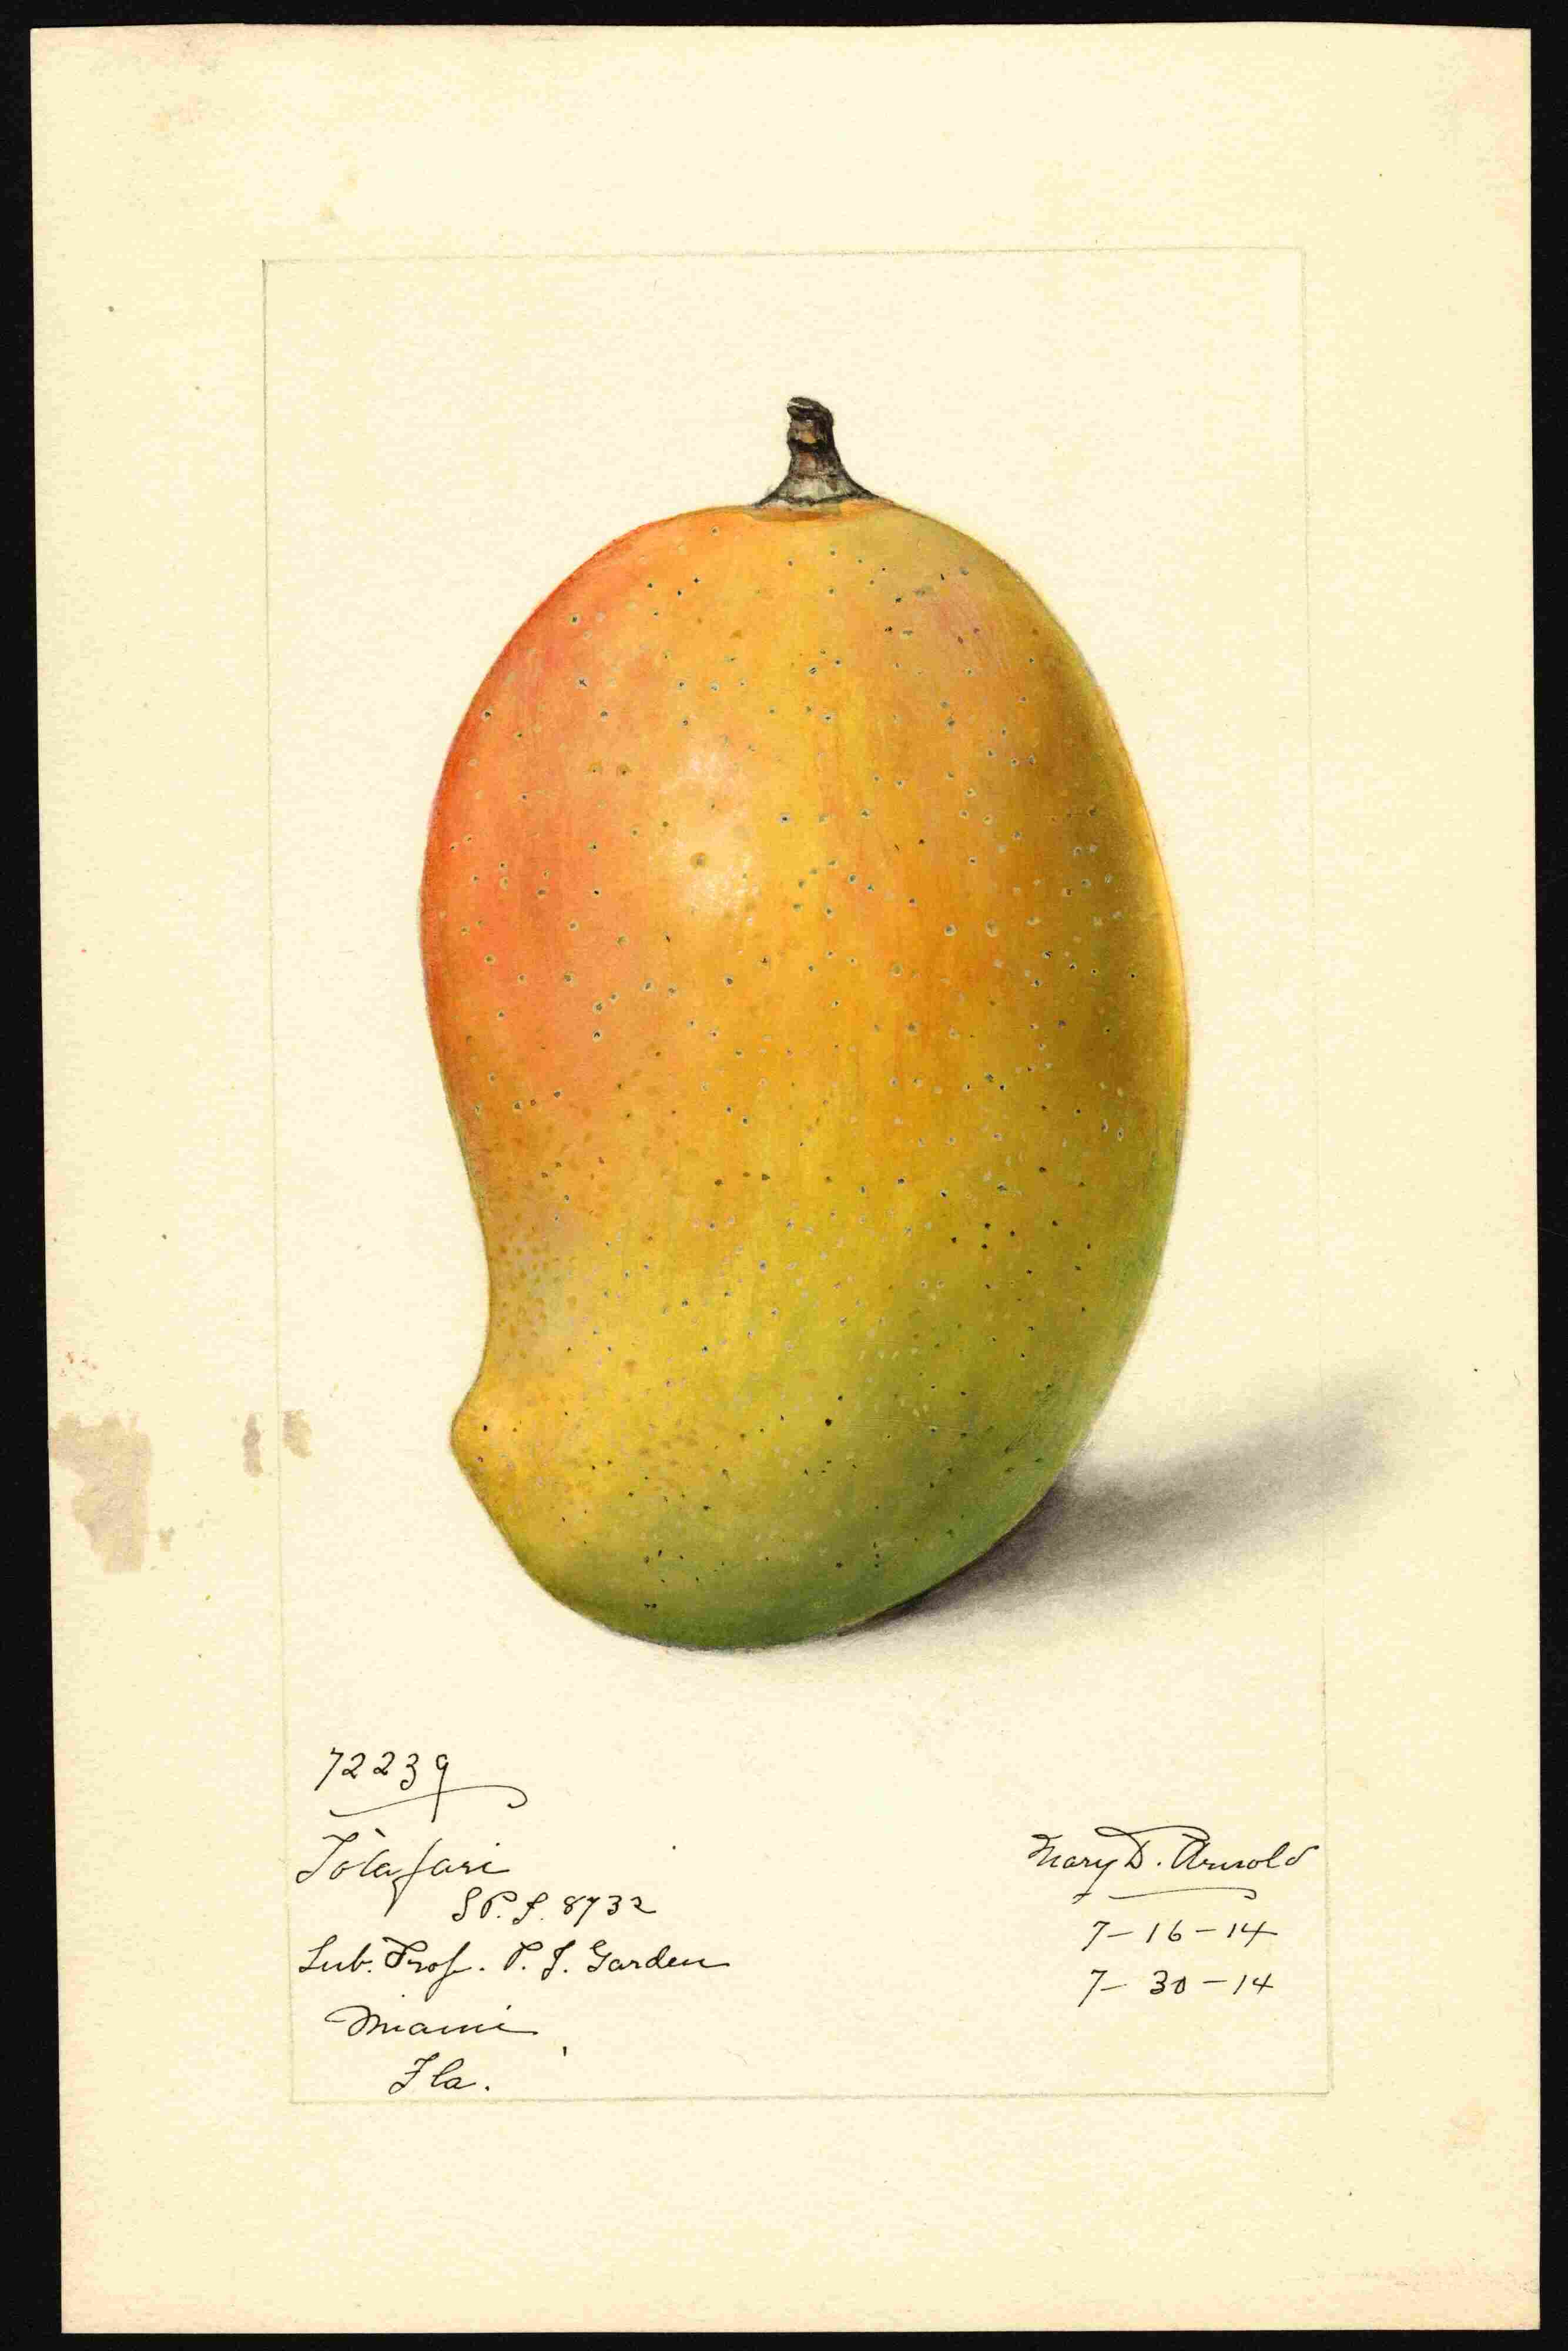 72239
Totafari
S.P.I. 8732
Sub. Trop. P. I. Garden
Miami
Fla.
Mary D. Arnold
7-16-14
7-30-14